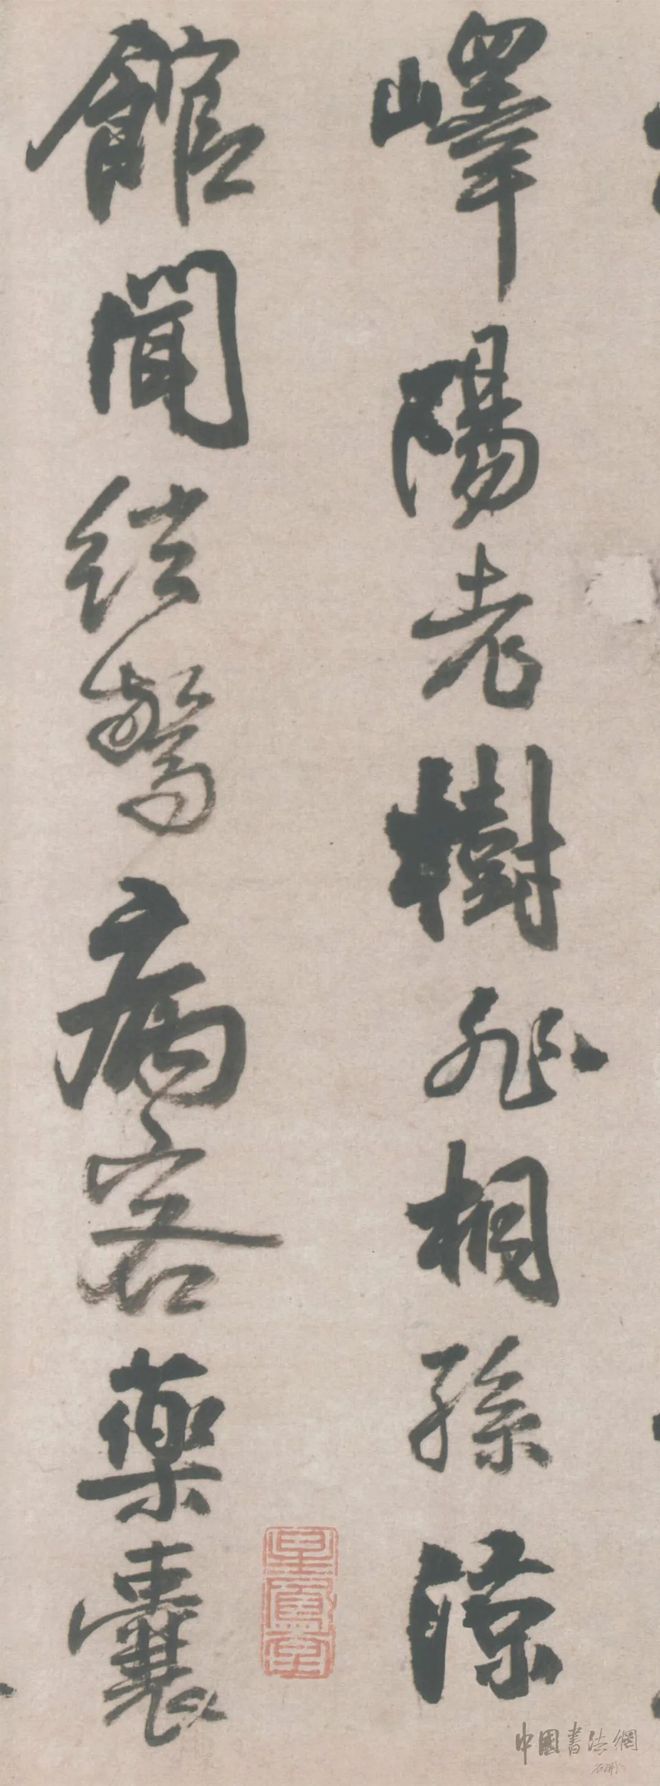 嶧陽老樹非桐孫涼
館聞絃驚病客藥囊
中國書法網